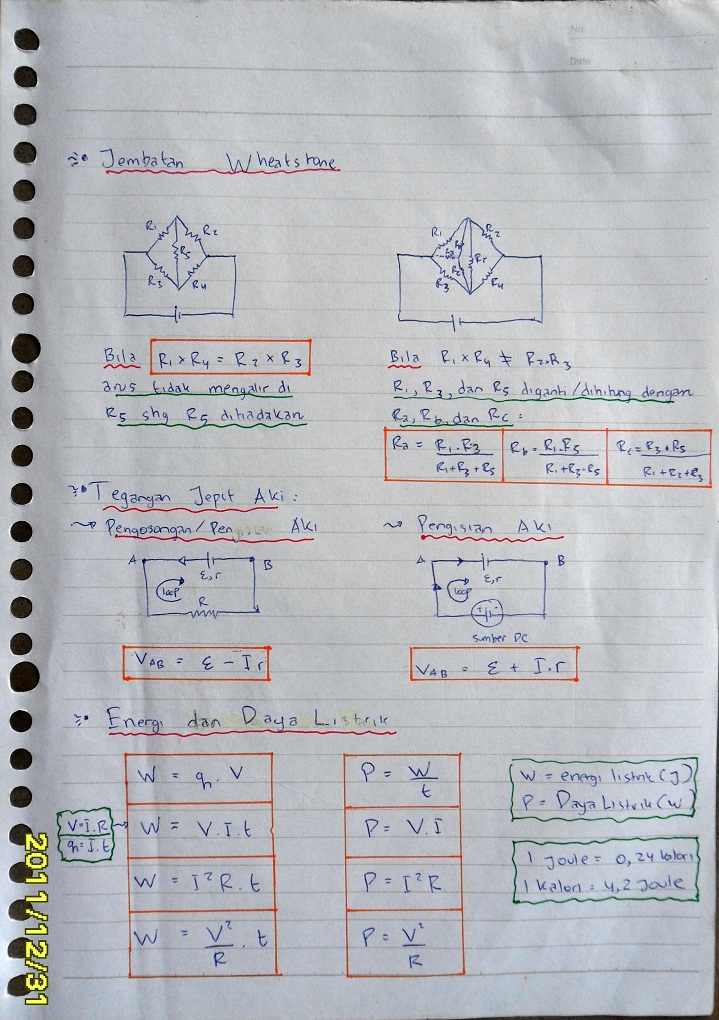 No.
Date
Jembatan Wheatstone
R1 R2
R5
R3 R4
R1 R2
Ra Rb
Rc R5
R3 R4
Bila R1 × R4 = R2 × R3
arus tidak mengalir di
R5 shg R5 dihadakan
Bila R1 × R4 ≠ R2×R3
R1, R3, dan R5 diganti/dihitung dengan
Ra, Rb, dan Rc :
Ra = R1.R3 / R1+R3+R5
Rb = R1.R5 / R1+R3+R5
Rc = R3.R5 / R1+R2+R3
Tegangan Jepit Aki :
Pengosongan/ Aki
A B
ε,r
loop
R
VAB = ε - Ir
Pengisian Aki
A B
ε,r
loop
+ -
sumber DC
VAB = ε + I.r
Energi dan Daya Listrik
V=I.R
q=I.t
W = q . V
W = V.I.t
W = I²R.t
W = V²/R . t
P = W/t
P = V.I
P = I²R
P = V²/R
W = energi listrik (J)
P = Daya Listrik (W)
1 Joule = 0,24 kalori
1 kalori = 4,2 Joule
2011/12/31